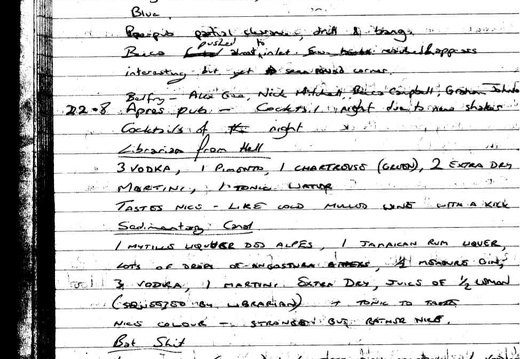 Blue.
partial clearance, drill & bang.
Rico pushed to inlet.
interesting but yet round corner.
Belfry - Alex Gee, Nick Mitchell, Rico Campbell, Graham
22.8 Apres pub - Cocktail night due to new shaker
Cocktails of the night
Librarian from Hell
3 VODKA, 1 PIMENTO, 1 CHARTREUSE (GREEN), 2 EXTRA DRY
MARTINI, 1 TONIC WATER
TASTES NICE - LIKE COLD MULLED WINE WITH A KICK
Sedimentary Canal
1 MYTILLE LIQUEUR DES ALPES, 1 JAMAICAN RUM LIQUER,
LOTS OF DROPS OF ANGOSTURA BITTERS, ½ MEASURE GIN,
3 VODKA, 1 MARTINI EXTRA DRY, JUICE OF ½ LEMON
(SQUEEZED BY LIBRARIAN) + TONIC TO TASTE
NICE COLOUR - STRANGE BUT RATHER NICE
Bat Shit